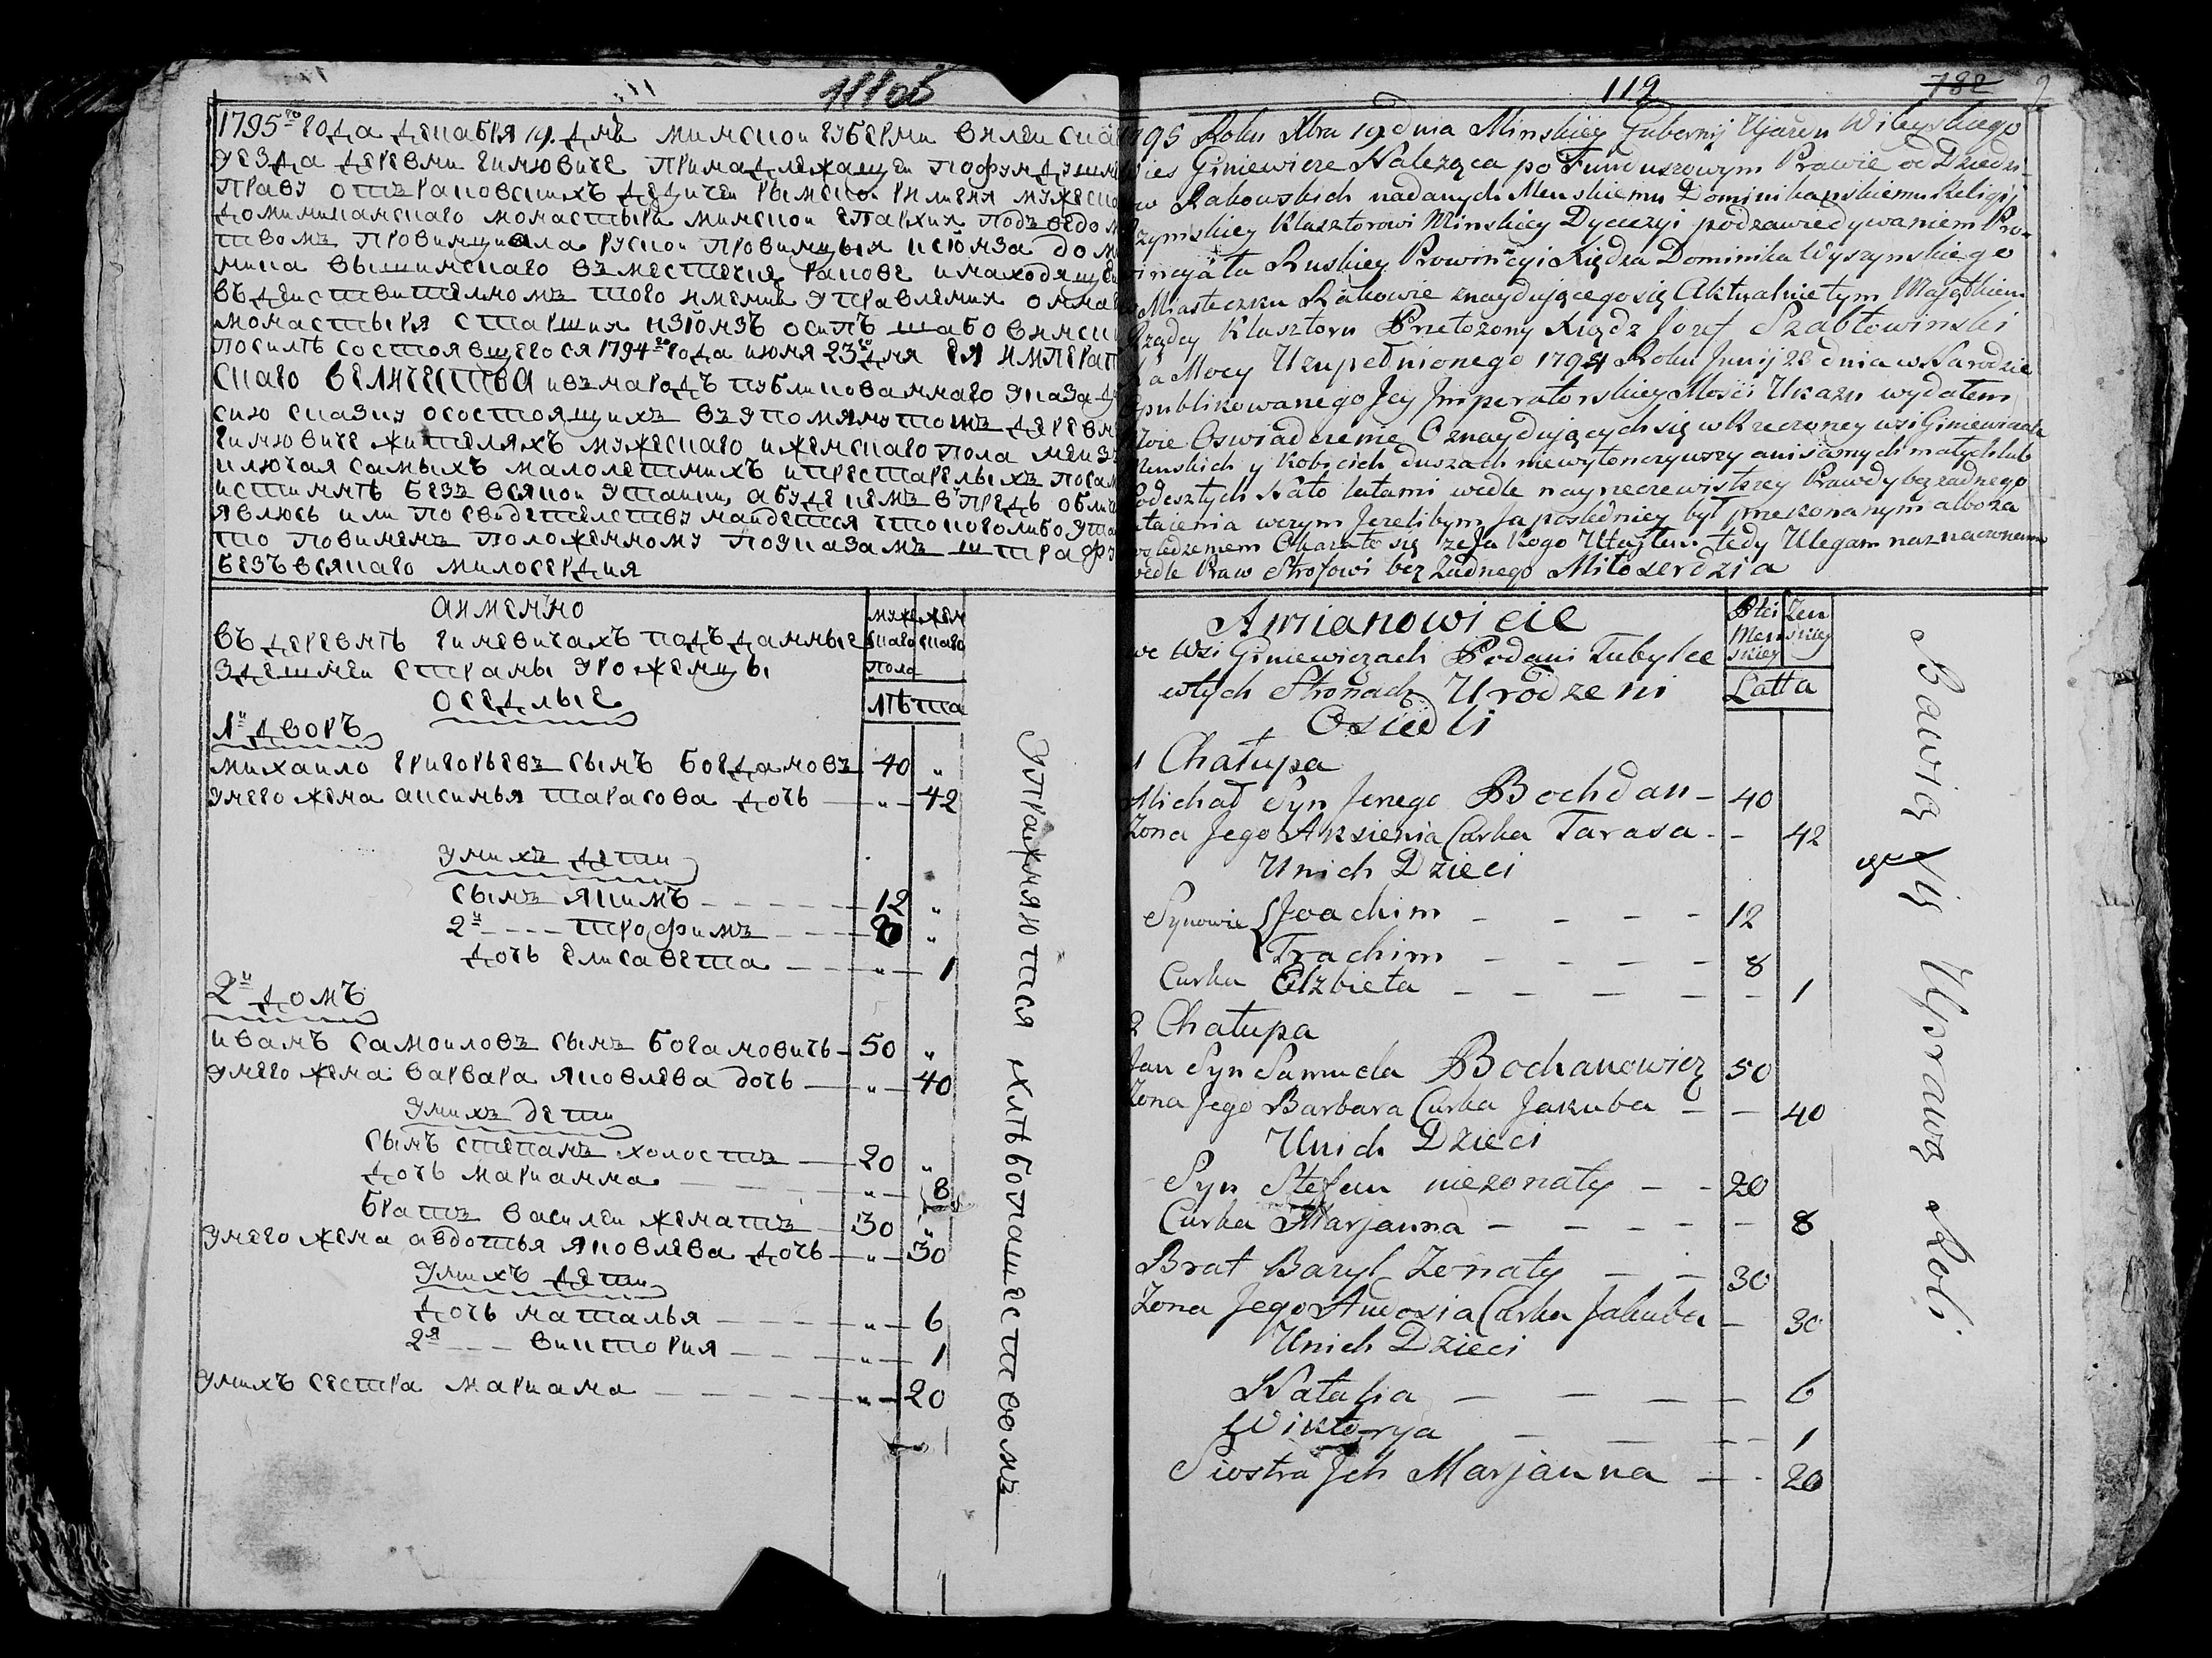 111 об
1795го года декабря 19. днѣ минской губерни вилеиска
уезда деревни гинювиче принадлежащеи пофундушн
праву отъ раковскихъ дедичеи рымско: рилигия мужеско
доминиканскаго монастыря минской епархия подъ ведом
твомъ провинциала руской провинцыя ксіонза дом
ника вышинскаго въ местечкя ракове и находящеи
въ деиствителномъ того имения управления онна
монастыря старшия ксіонзъ осипъ шабовински
посилѣ состоявшегося 1794го года июня 23го дня ея импера
скаго величества и въ народъ публикованнаго указа д
сию сказку осостоящихъ въ упомянутомъ деревн
гинювиче жителяхъ мужескаго и женскаго пола не из
ключая самыхъ малолетнихъ и престарелыхъ поса
истиннѣ безъ всякои утаики, а буде кемъ в предь облич
явлюсь или по свидетелству найдется что коголибо ута
то повиненъ положенному поуказамъ штрафу
безъ всякаго милосердия
аименно
въ деревнѣ гиневичахъ подъданные
здешнеи страны уроженцы
оседлые
муже скаго
жен скаго
пола
лѣта
1й дворъ
михаило григорьевъ сынъ богдановъ 40 „
унего жена аксинья тарасова дочь — „ — 42
унихъ дети
сынъ якимъ - - - - - 12 „
2й - - - - трофимъ - - - - 8 „
дочь елисавета - - - „ — 1
2й домъ
иванъ самоиловъ сынъ боганович – 50 „
унего жена варвара яковлева дочь — „ — 40
унихъ дети
сынъ степанъ холостъ — 20 „
дочь марианна - - - „ — 8
братъ василеи женатъ 30 „
унего жена авдотья яковлева дочь — „ — 30
унихъ дети
дочь наталья - - - „ — 6
2я - - - виктория - - - „ — 1
унихъ сестра мариана - - - „ — 20
упражняются хлѣбопашествомъ
119
782
2
795 Roku Xbra 19 dnia Minskiey Gubernij Ujazdu Wileyskiego
ies Giniewicze Należąca po Funduszowym Prawie od Dziedzi-
w Rakowskich nadanych Menskiemu Dominikanskiemu Religij
zymskiey Klasztorowi Minskiey Dyecezyi podzawiedywaniem Pro-
incyała Ruskiey Prowincyi Xiędza Dominika Wyszynskiego
Miasteczku Rakowie znaydującegosię Aktualnie tym Maiątkiem
Rządcy Klasztoru Przełożony Xiądz Jozef Szabłowinski
a Mocy Uzupełnionego 1794 Roku Junij 23 dnia w Narodzie
publikowanego Jey Jmperatorskiey Mości Ukazu wydałem
oie Oswiadczenie O znaydujących się w Rzeczoney wsi Giniewiczach
enskich y Kobiecich duszach niewyłonczywszy ani samych małych lub
odeszłych Nato latami wedle nayrzeczewistszey Prawdy bez żadnego
taienia wczym Jeżelibym Ja posledniey był przekonanym albo za
sledzeniem Okazało się że Ja kogo Utaiłem tedy Ulegam naznaczonemu
edle Praw Strofowi bez Żadnego Miłoserdzia
Amianowicie
we Wsi Giniewiczach Podani Tubylce
wtych Stronach Urodzeni
Osiedli
Płci Men skiey
Zen skiey
Latta
1 Chałupa
Michał Syn Jenego Bochdan – 40
Zona Jego Aksienia Curka Tarasa - – 42
Unich Dzieci
Synowie Joachim – – – – 12
Trachim – – – – 8
Curka Elzbieta – – – – – 1
2 Chałupa
Jan Syn Samuela Bochanowicz 50
Zona Jego Barbara Curka Jakuba – – 40
Unich Dzieci
Syn Stefan niezonaty – – 20
Curka Marjanna – – – – – 8
Brat Bazyl Zonaty – – 30
Zona Jego Audosia Curka Jakuba – 30
Unich Dzieci
Natalia – – – – 6
Wiktorya – – – – 1
Siostra Jch Marjanna – - 20
Bawią się Uprawą Roli